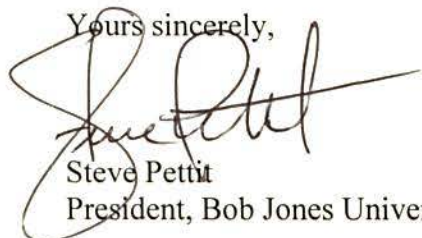 Yours sincerely,
Steve Pettit
Steve Pettit
President, Bob Jones Univer